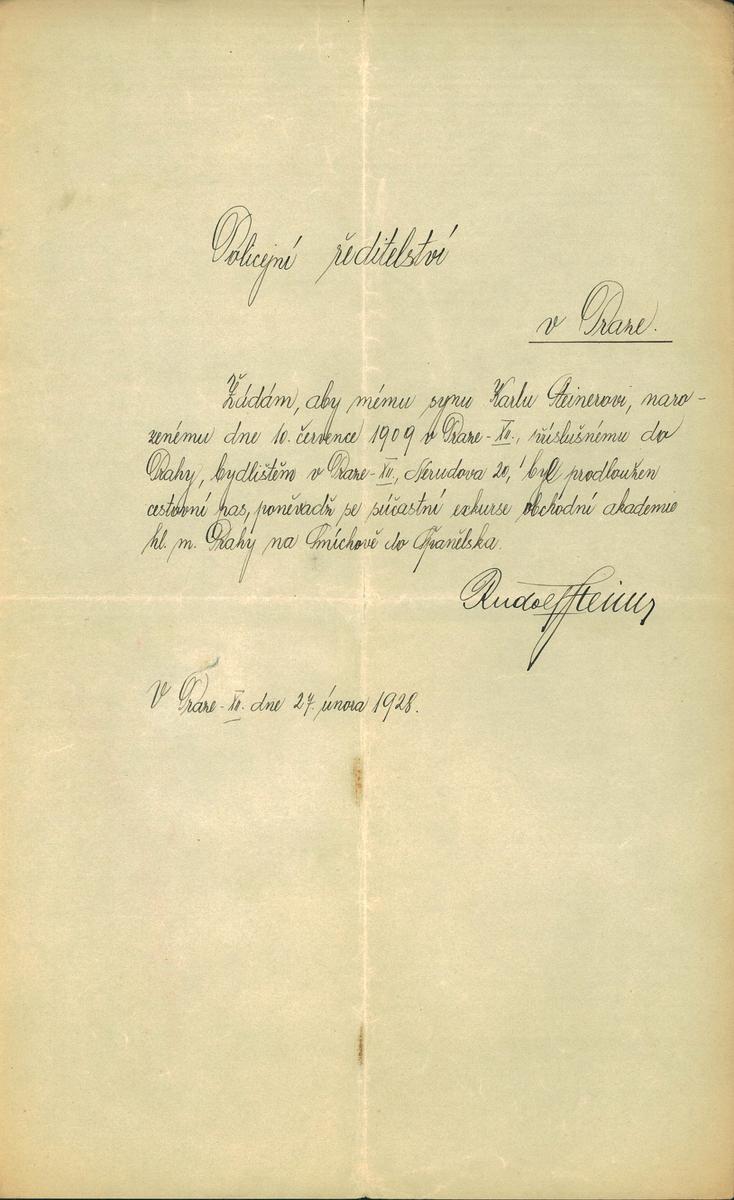 Policejní ředitelství
v Praze.
Žádám, aby mému synu Karlu Steinerovi, naro-
zenému dne 10. července 1909 v Praze-XII., příslušnému do
Prahy, bydlištěm v Praze-XII., Nerudova 20, byl prodloužen
cestovní pas, poněvadž se súčastní exkurse obchodní akademie
hl. m. Prahy na Smíchově do Španělska.
Rudolf Steiner
V Praze-XII. dne 27. února 1928.